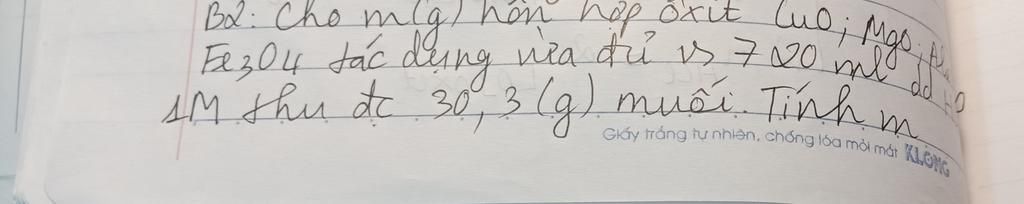 B2: Cho m(g) hỗn hợp oxit CuO; MgO;
Fe3O4 tác dụng vừa đủ vs 700 ml dd
1M thu đc 30,3 (g) muối. Tính m
Giấy trắng tự nhiên, chống lóa mỏi mắt KLONG